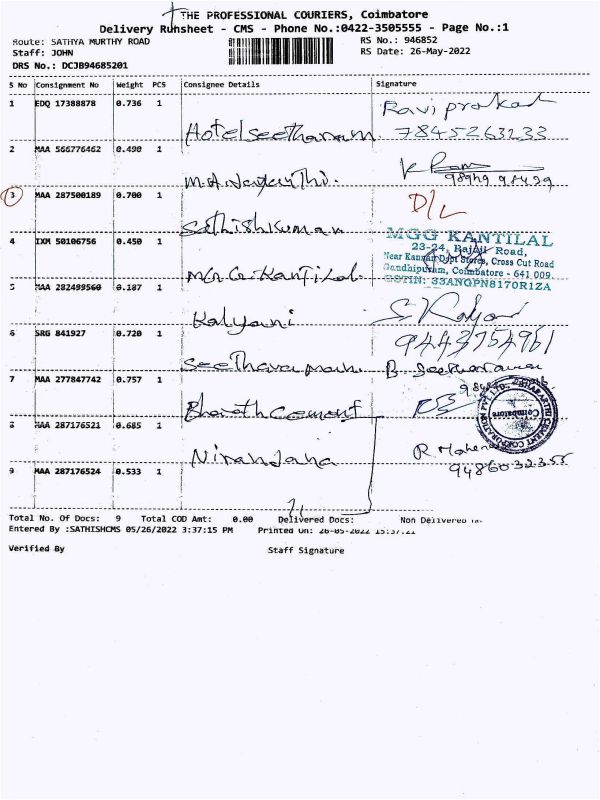 THE PROFESSIONAL COURIERS, Coimbatore
Delivery Runsheet - CMS - Phone No.:0422-3505555 - Page No.:1
Route: SATHYA MURTHY ROAD RS No.: 946852
Staff: JOHN RS Date: 26-May-2022
DRS No.: DCJB94685201
S No Consignment No Weight PCS Consignee Details Signature
1 EDQ 17388878 0.736 1 Hotel Seetharam Raviprakash
7845263233
2 MAA 566776462 0.490 1 M.A. Jayanthi.
3 MAA 287500189 0.700 1 Sathishkumar D/L
4 IXM 50106756 0.450 1 M/G. G. Kantilal
MGG KANTILAL
23-24, Rajaji Road,
Near Kannan Dept Stores, Cross Cut Road
Gandhipuram, Coimbatore - 641 009
GSTIN: 33ANGPN8170R1ZA
5 MAA 282499560 0.187 1 Kalyani S Kalyani
9443754961
6 SRG 841927 0.720 1 Seetharaman B. Seetharaman
7 MAA 277847742 0.757 1 Bharath cement
BHARATHI CEMENT CORPORATION PVT LTD. Coimbatore
8 MAA 287176521 0.685 1 Niranjana R Mahen
94860-32355
9 MAA 287176524 0.533 1 11
Total No. Of Docs: 9 Total COD Amt: 0.00 Delivered Docs: Non Delivered
Entered By :SATHISHCMS 05/26/2022 3:37:15 PM Printed On: 26-05-2022 15:37:21
Verified By Staff Signature